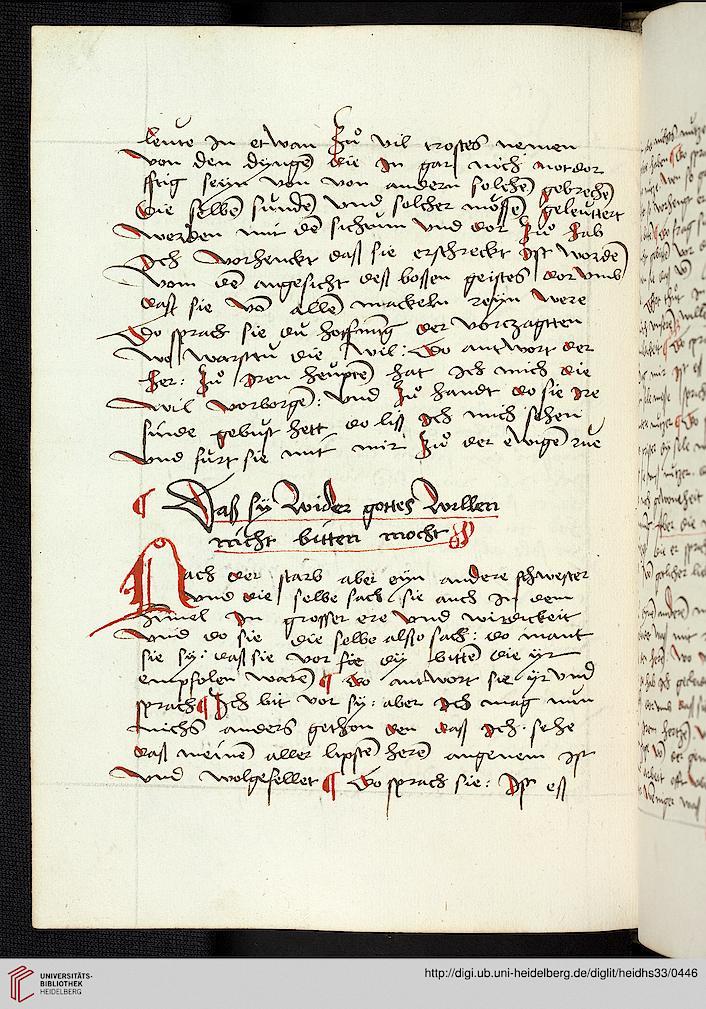 leute In etwan Zu vil trostes nemen
von den dyngen die In gar nich notdor
fftig seyn von von andern solchen gebrechen
die selben sunden und solcher mussen geleuttert
werden mit den sichtum und dor Zu hab
Ich vorhenckt daß sie erschreckt Ist worden
vom den angesicht deß bossen geistes dor umb
daß sie von allen mackeln reyn were
Do sprach sie du hoffnung der vorczagtten
wo warsttu die wil: Do antwort der
her: Zu Iren heupten hat Ich mich die
wil vorborgen: und Zu handt do sie Ire
sunde gebust hett do liß Ich mich sehen
und furt sie mit mir Zu der ewigen rue
¶ Daß sy Wider gottes Willen
nicht bitten mocht
Nach der starb aber eyn andere schwester
und die selbe sach sie auch In dem
himel In grosser ere und wirdickeit
und do sie die selbe alsso sach: do mant
sie sy: daß sie vor sie dy bitten die yr
empfolen waren ¶ do antwort sie yr und
sprach ¶ Ich bit vor sy: aber Ich mag nun
nichs anders gethon den daß Ich sehe
daß meinen aller lipsten heren angenem Ist
und wolgefellet ¶ do sprach sie: Ist eß
UNIVERSITÄTS-
BIBLIOTHEK
HEIDELBERG
http://digi.ub.uni-heidelberg.de/diglit/heidhs33/0446